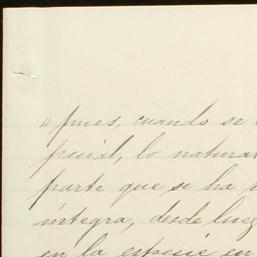 " pues, cuando se
pecial, lo natura
parte que se ha
íntegra, desde lueg
en la especie en